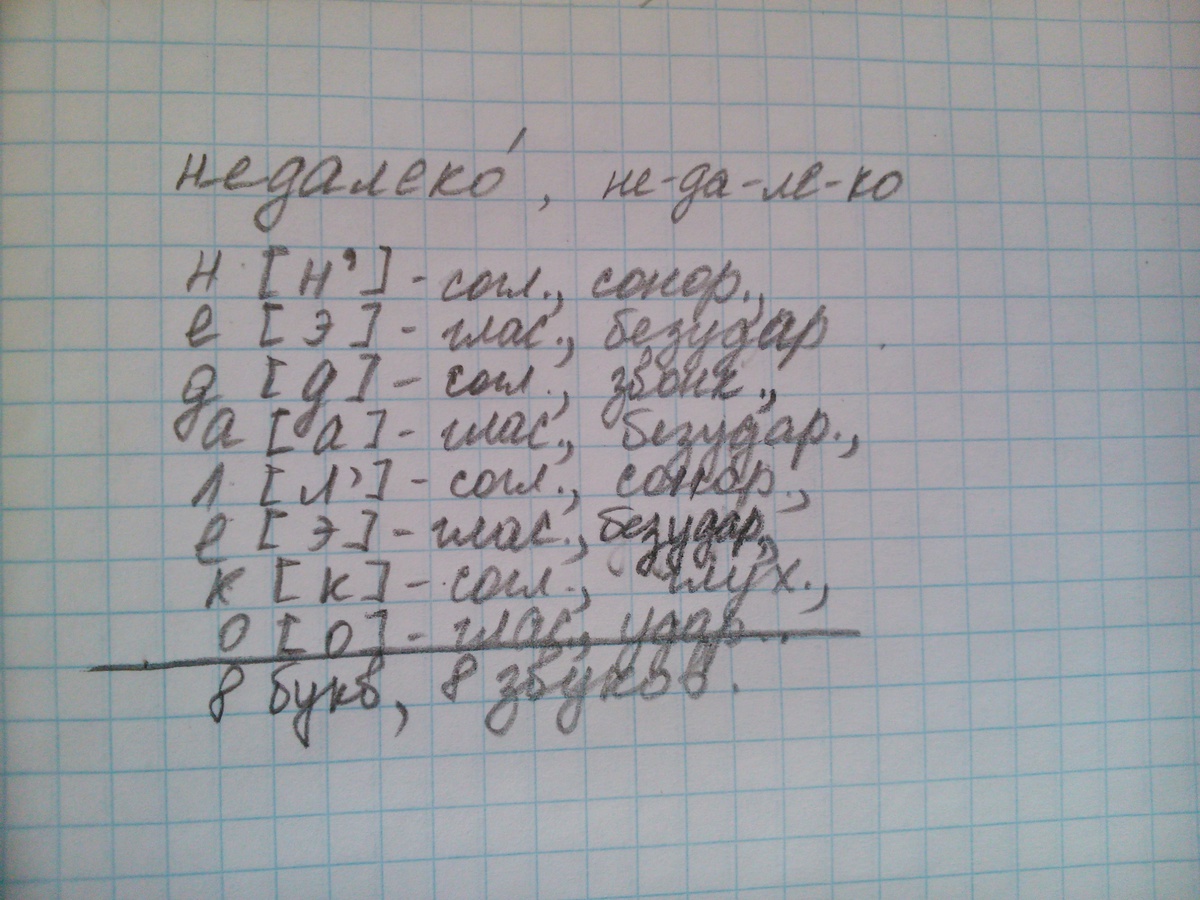 недалеко́, не-да-ле-ко
н [н'] - согл., сонор.,
е [э] - глас., безудар
д [д] - согл., звонк.,
а [а] - глас., безудар.,
л [л'] - согл., сонор.,
е [э] - глас., безудар.,
к [к] - согл., глух.,
о [о] - глас., удар..
8 букв, 8 звуков.